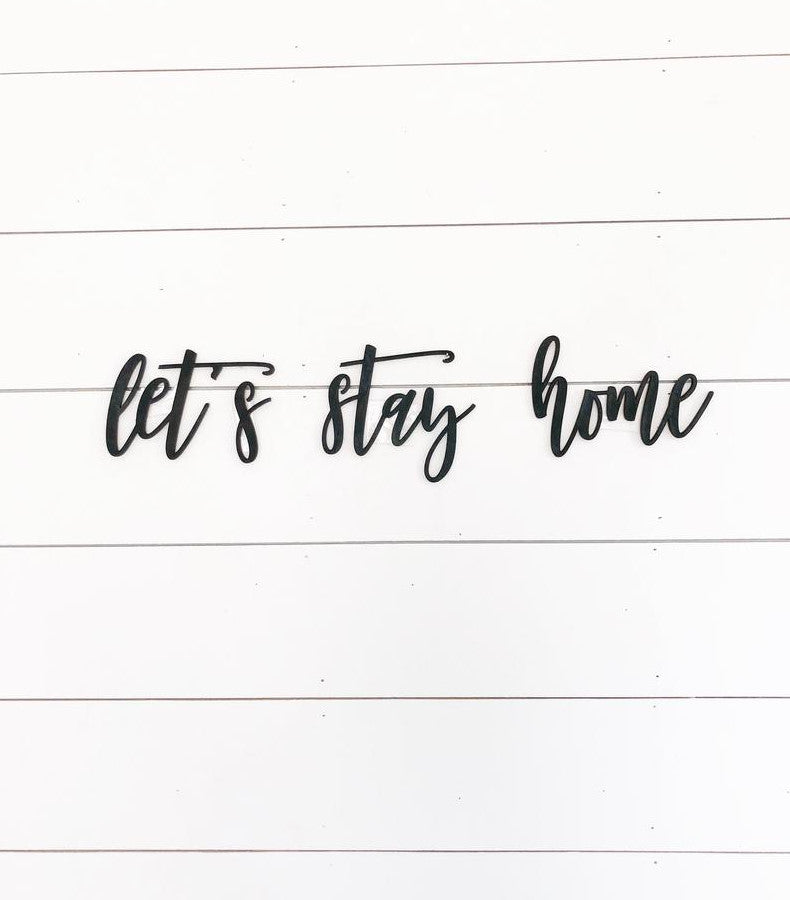 let's stay home